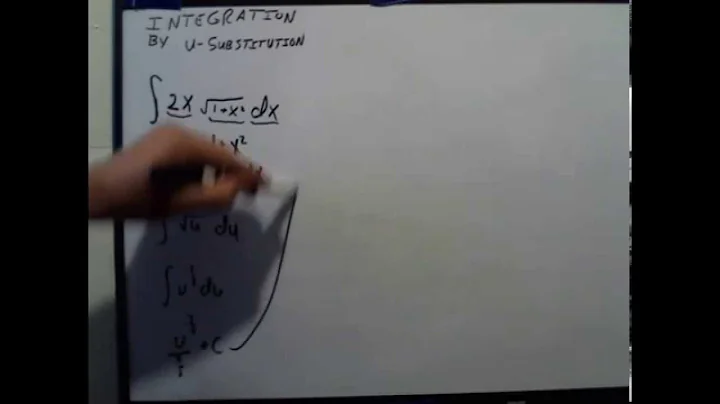 INTEGRATION
BY U-SUBSTITUTION
∫ 2x √1+x² dx
1+x²
∫ √u du
∫ u^½ du
+ C